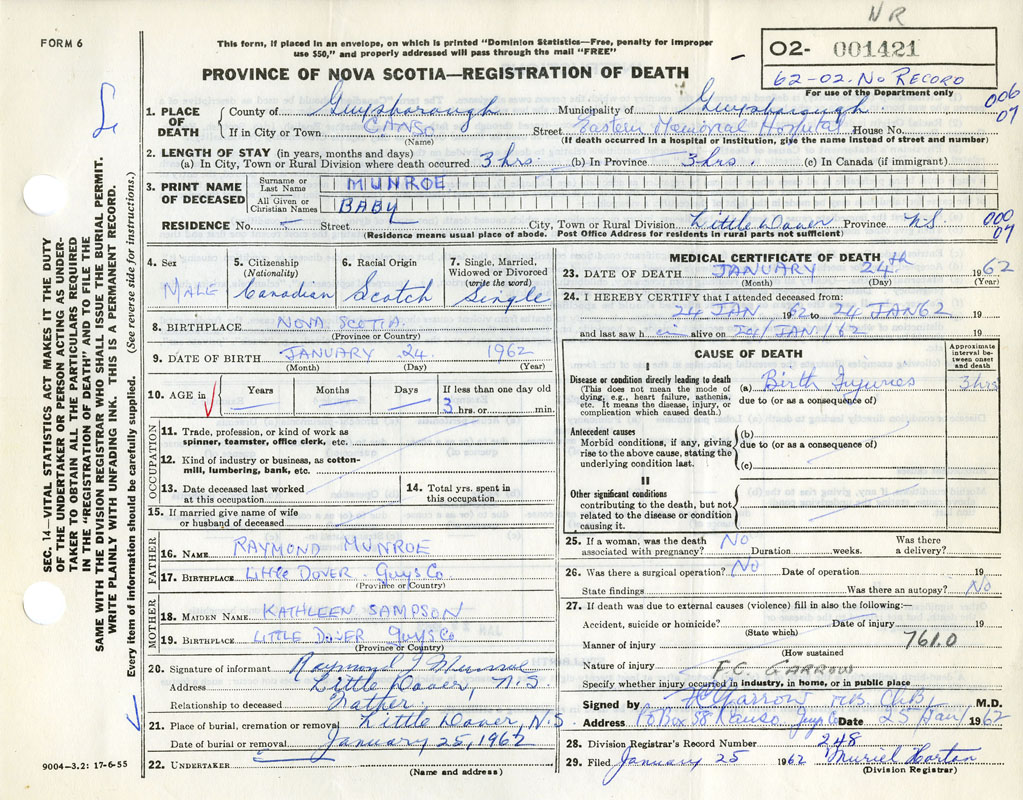 NR
FORM 6
This form, if placed in an envelope, on which is printed "Dominion Statistics—Free, penalty for improper
use $50," and properly addressed will pass through the mail "FREE"
PROVINCE OF NOVA SCOTIA—REGISTRATION OF DEATH
O2- 001421
62-02-No RECORD
For use of the Department only
006
07
1. PLACE OF DEATH
County of Guysborough Municipality of Guysborough
If in City or Town CANSO Street Eastern Memorial Hospital House No.
(Name) (If death occurred in a hospital or institution, give the name instead of street and number)
2. LENGTH OF STAY (in years, months and days)
(a) In City, Town or Rural Division where death occurred 3 hrs. (b) In Province 3 hrs. (c) In Canada (if immigrant)
3. PRINT NAME OF DECEASED
Surname or Last Name MUNROE
All Given or Christian Names BABY
RESIDENCE No. Street City, Town or Rural Division Little Dover Province N.S
(Residence means usual place of abode. Post Office Address for residents in rural parts not sufficient)
000
07
4. Sex MALE
5. Citizenship (Nationality) Canadian
6. Racial Origin Scotch
7. Single, Married, Widowed or Divorced (write the word) Single
8. BIRTHPLACE NOVA SCOTIA
(Province or Country)
9. DATE OF BIRTH JANUARY 24 1962
(Month) (Day) (Year)
10. AGE in Years Months Days If less than one day old
3 hrs. or min.
OCCUPATION
11. Trade, profession, or kind of work as
spinner, teamster, office clerk, etc.
12. Kind of industry or business, as cotton-
mill, lumbering, bank, etc.
13. Date deceased last worked
at this occupation
14. Total yrs. spent in
this occupation
15. If married give name of wife
or husband of deceased
FATHER
16. NAME RAYMOND MUNROE
17. BIRTHPLACE Little DOVER Guys Co
(Province or Country)
MOTHER
18. MAIDEN NAME KATHLEEN SAMPSON
19. BIRTHPLACE LITTLE DOVER Guys Co
(Province or Country)
20. Signature of informant Raymond J Munroe
Address Little Dover, N.S
Relationship to deceased Father
21. Place of burial, cremation or removal Little Dover, N.S
Date of burial or removal January 25, 1962
22. UNDERTAKER
(Name and address)
MEDICAL CERTIFICATE OF DEATH
23. DATE OF DEATH JANUARY 24th 1962
(Month) (Day) (Year)
24. I HEREBY CERTIFY that I attended deceased from:
24 JAN 1962 to 24 JAN 62 19
and last saw h im alive on 24/JAN/62 19
CAUSE OF DEATH
Approximate interval between onset and death
I
Disease or condition directly leading to death
(This does not mean the mode of
dying, e.g., heart failure, asthenia,
etc. It means the disease, injury, or
complication which caused death.)
(a) Birth Injuries 3 hrs
due to (or as a consequence of)
Antecedent causes
Morbid conditions, if any, giving
rise to the above cause, stating the
underlying condition last.
(b)
due to (or as a consequence of)
(c)
II
Other significant conditions
contributing to the death, but not
related to the disease or condition
causing it.
25. If a woman, was the death
associated with pregnancy? No Duration weeks. Was there
a delivery?
26. Was there a surgical operation? No Date of operation 19
State findings Was there an autopsy? No
27. If death was due to external causes (violence) fill in also the following:—
Accident, suicide or homicide? Date of injury 19
(State which)
Manner of injury 761.0
(How sustained
Nature of injury F.C. GARROW
Specify whether injury occurred in industry, in home, or in public place
Signed by F C Garrow M.B. Ch.B. M.D.
Address P.O Box 38 Canso Guys Co Date 25/Jan/ 1962
28. Division Registrar's Record Number 248
29. Filed January 25 1962 Muriel Horton
(Division Registrar)
SEC. 14—VITAL STATISTICS ACT MAKES IT THE DUTY
OF THE UNDERTAKER OR PERSON ACTING AS UNDER-
TAKER TO OBTAIN ALL THE PARTICULARS REQUIRED
IN THE "REGISTRATION OF DEATH" AND TO FILE THE
SAME WITH THE DIVISION REGISTRAR WHO SHALL ISSUE THE BURIAL PERMIT.
WRITE PLAINLY WITH UNFADING INK. THIS IS A PERMANENT RECORD.
Every item of information should be carefully supplied. (See reverse side for instructions.)
9004-3.2: 17-6-55